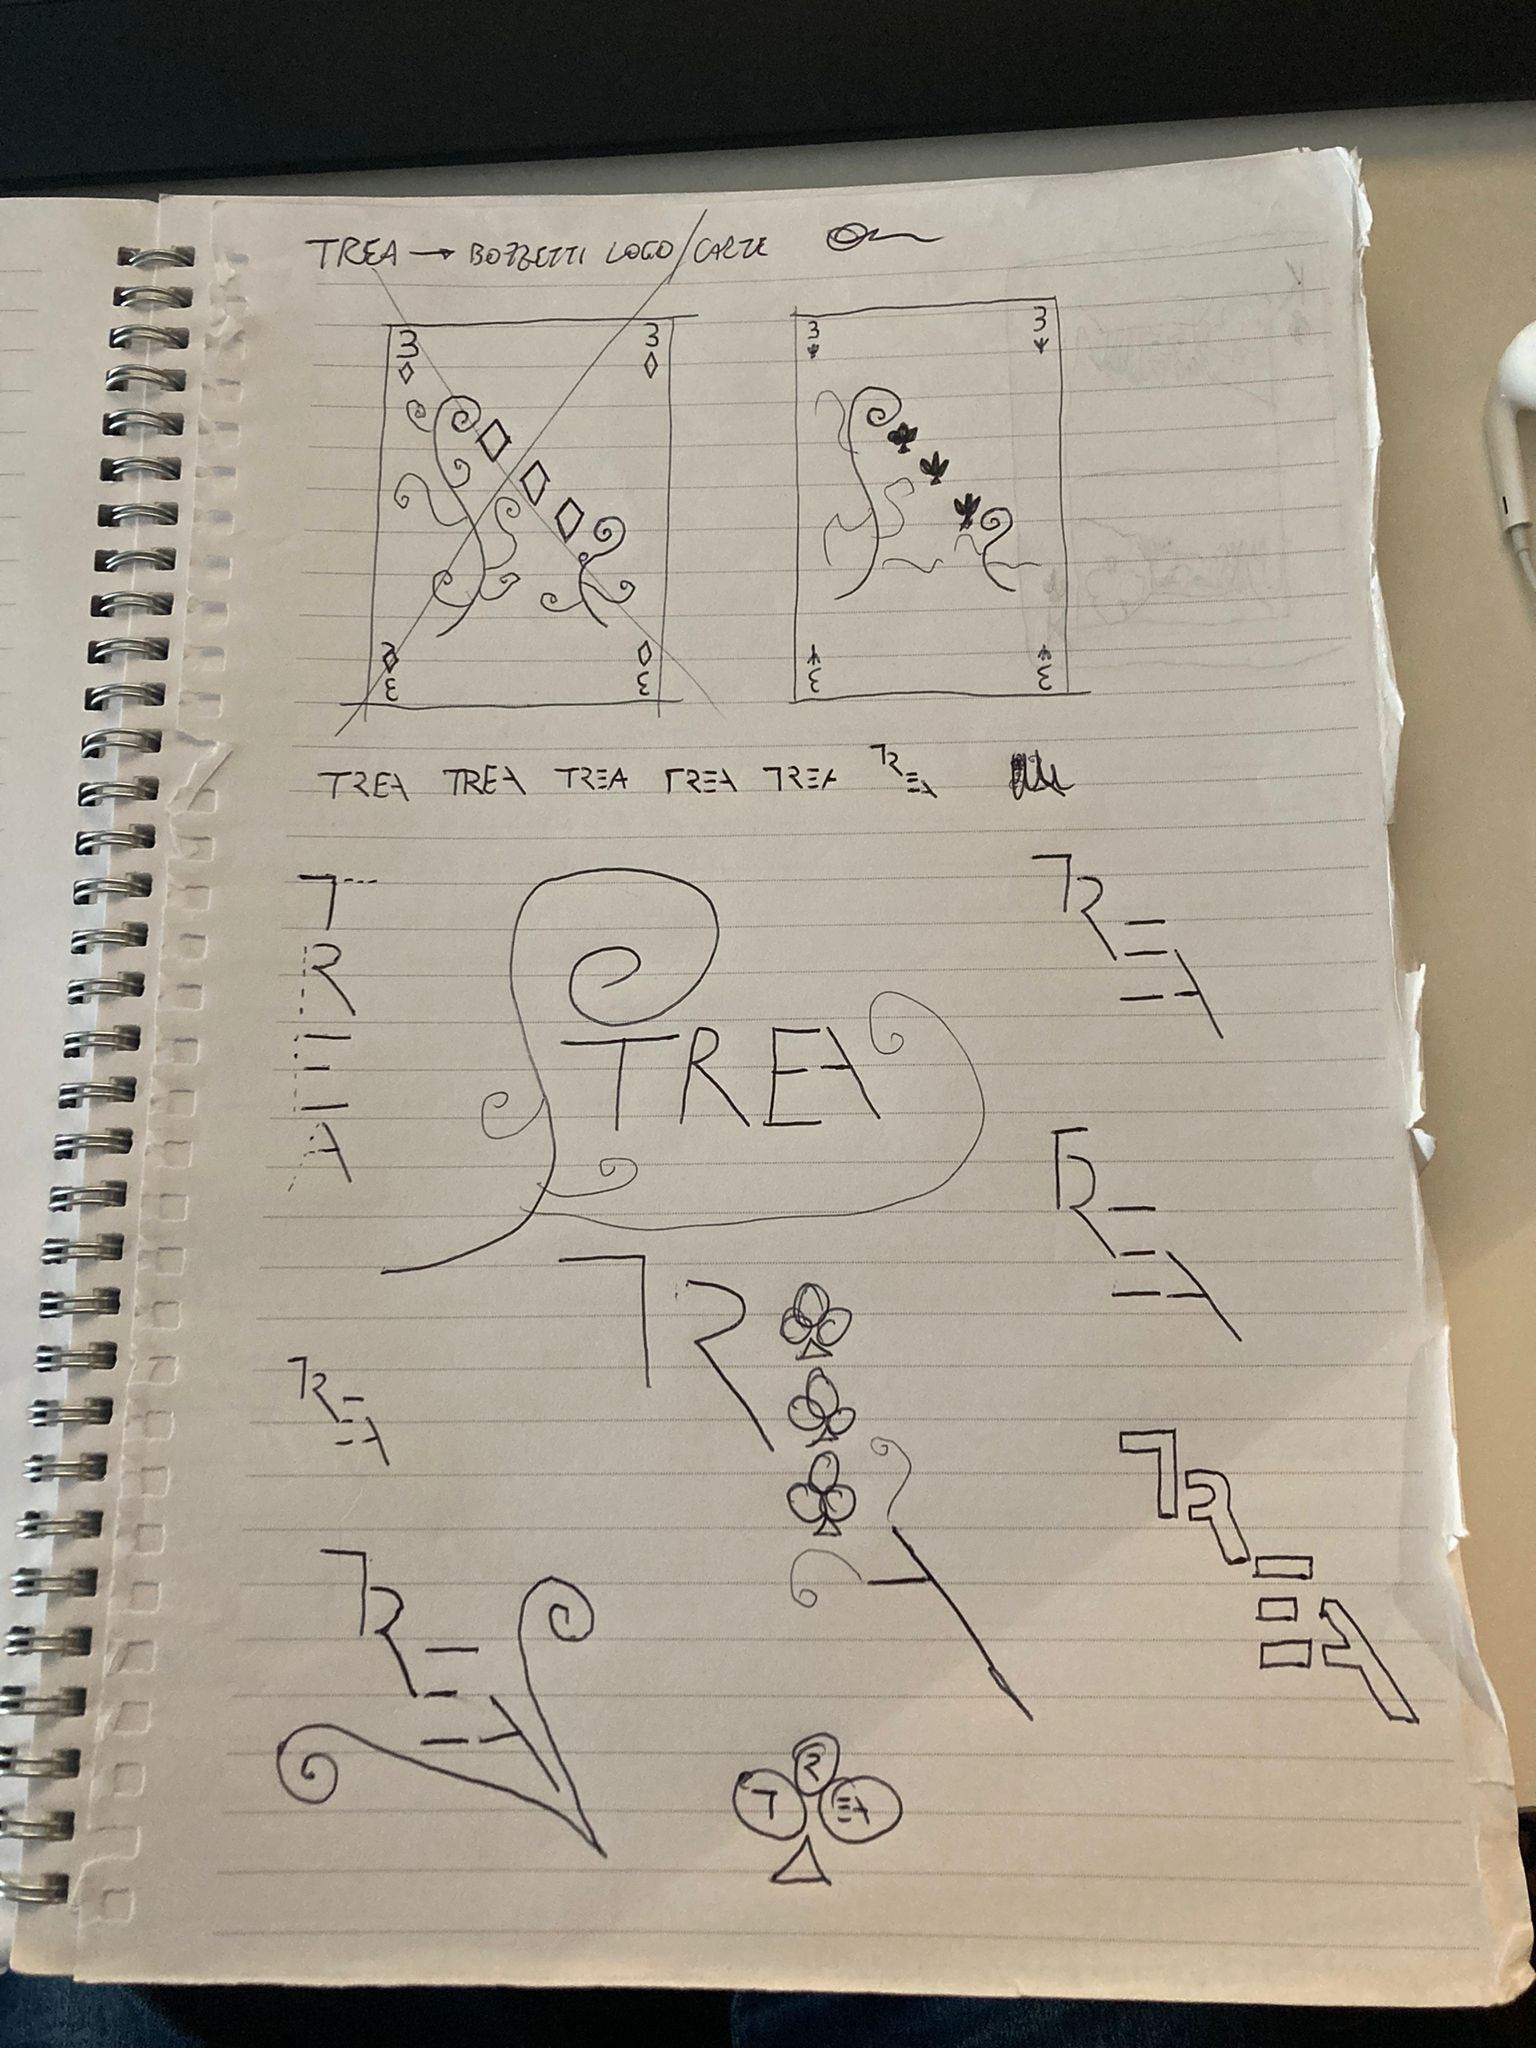 TREA → BOZZETTI LOGO/CARTE
3 3
3 3
3 3
3 3
TREA TREA TREA TREA TREA TREA
TREA
TREA
TREA
TREA
TR A
TREA
TREA
TREA
T R EA